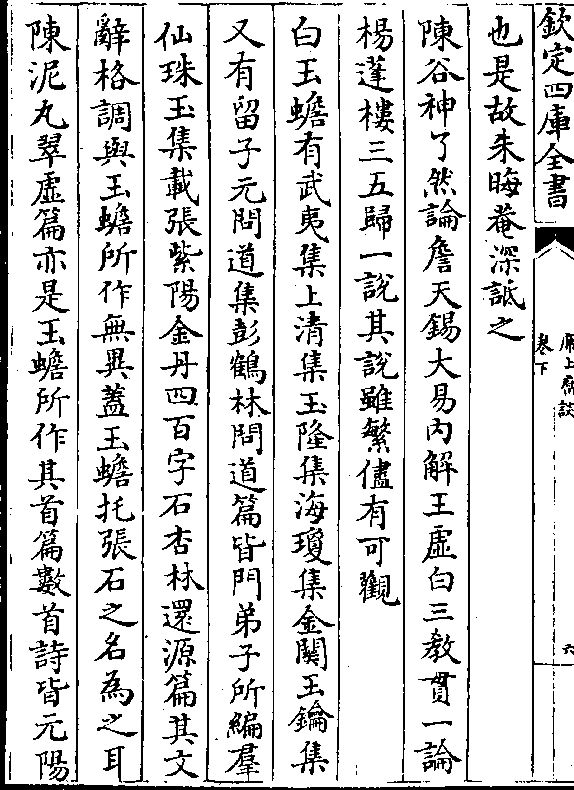 欽定四庫全書
席上腐談
卷下
六
也是故朱晦菴深詆之
陳谷神了然論詹天錫大易内解王虚白三教貫一論
楊蓬樓三五歸一說其說雖繁儘有可觀
白玉蟾有武夷集上清集玉隆集海瓊集金闗玉鑰集
又有留子元問道集彭鶴林問道篇皆門弟子所編羣
仙珠玉集載張紫陽金丹四百字石杏林還源篇其文
辭格調與玉蟾所作無異蓋玉蟾托張石之名為之耳
陳泥丸翠虚篇亦是玉蟾所作其首篇數首詩皆元陽